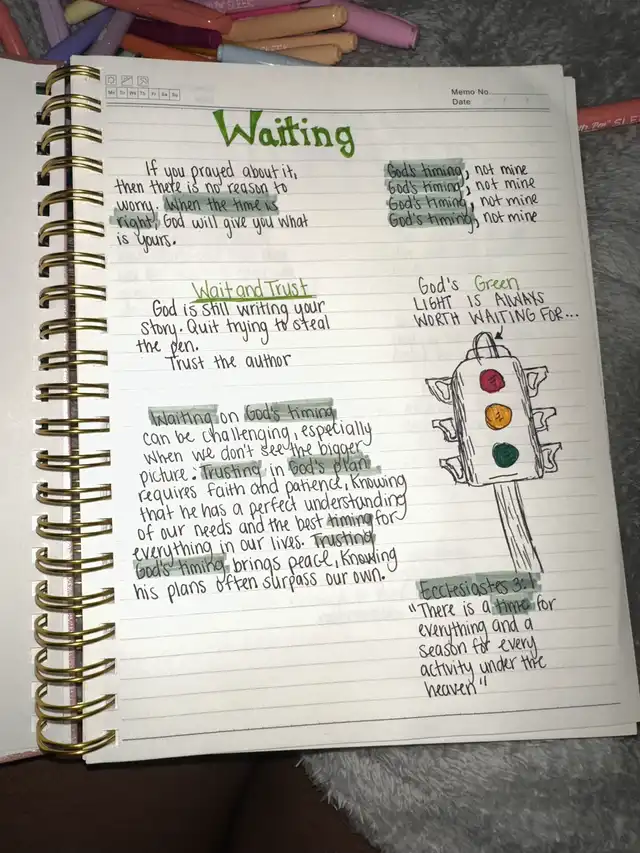 Memo No.
Date
Mo Tu We Th Fr Sa Su
Waiting
If you prayed about it,
then there is no reason to
worry. When the time is
right, God will give you what
is yours.
God's timing, not mine
God's timing, not mine
God's timing, not mine
God's timing, not mine
Wait and Trust
God is still writing your
story. Quit trying to steal
the pen.
Trust the author
God's Green
LIGHT IS ALWAYS
WORTH WAITING FOR...
Waiting on God's timing
can be challenging, especially
when we don't see the bigger
picture. Trusting in God's plan
requires faith and patience, Knowing
that he has a perfect understanding
of our needs and the best timing for
everything in our lives. Trusting
God's timing, brings peace, Knowing
his plans often surpass our own.
Ecclesiastes 3:1
"There is a time for
everything and a
season for every
activity under the
heaven"